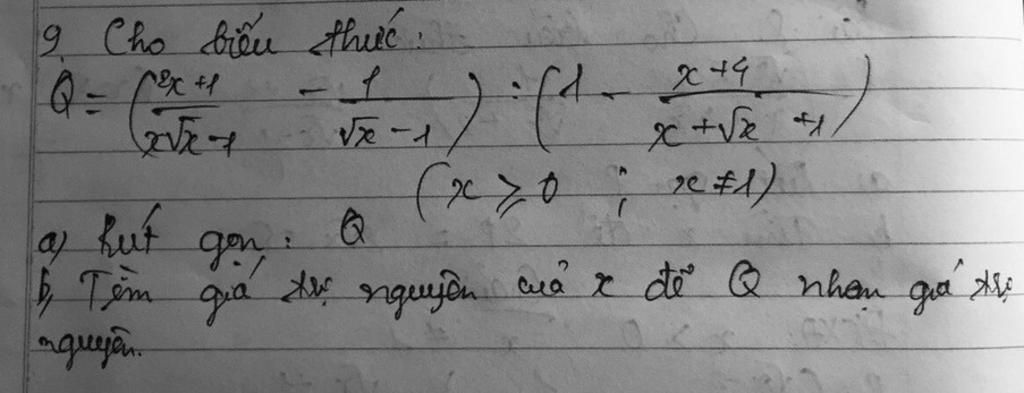 9, Cho biểu thức:
Q = ((2x+1)/(x√x-1) - 1/(√x-1)) : (1 - (x+4)/(x+√x+1))
(x ≥ 0 ; x ≠ 1)
a) Rút gọn: Q
b, Tìm giá trị nguyên của x để Q nhận giá trị
nguyên.